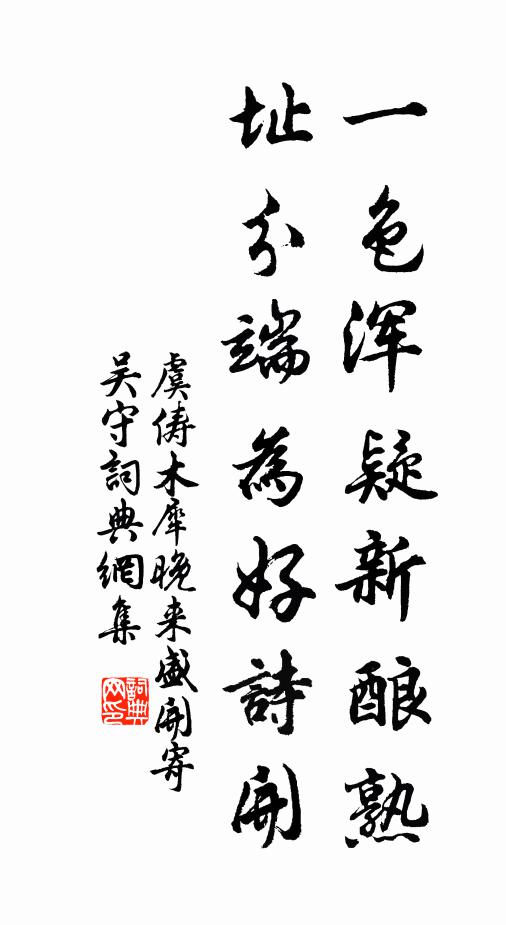 一色渾疑新酿熟
址分端為好詩開
虞儔木犀晚来盛開寄
吴守詞典網集
詞典网印